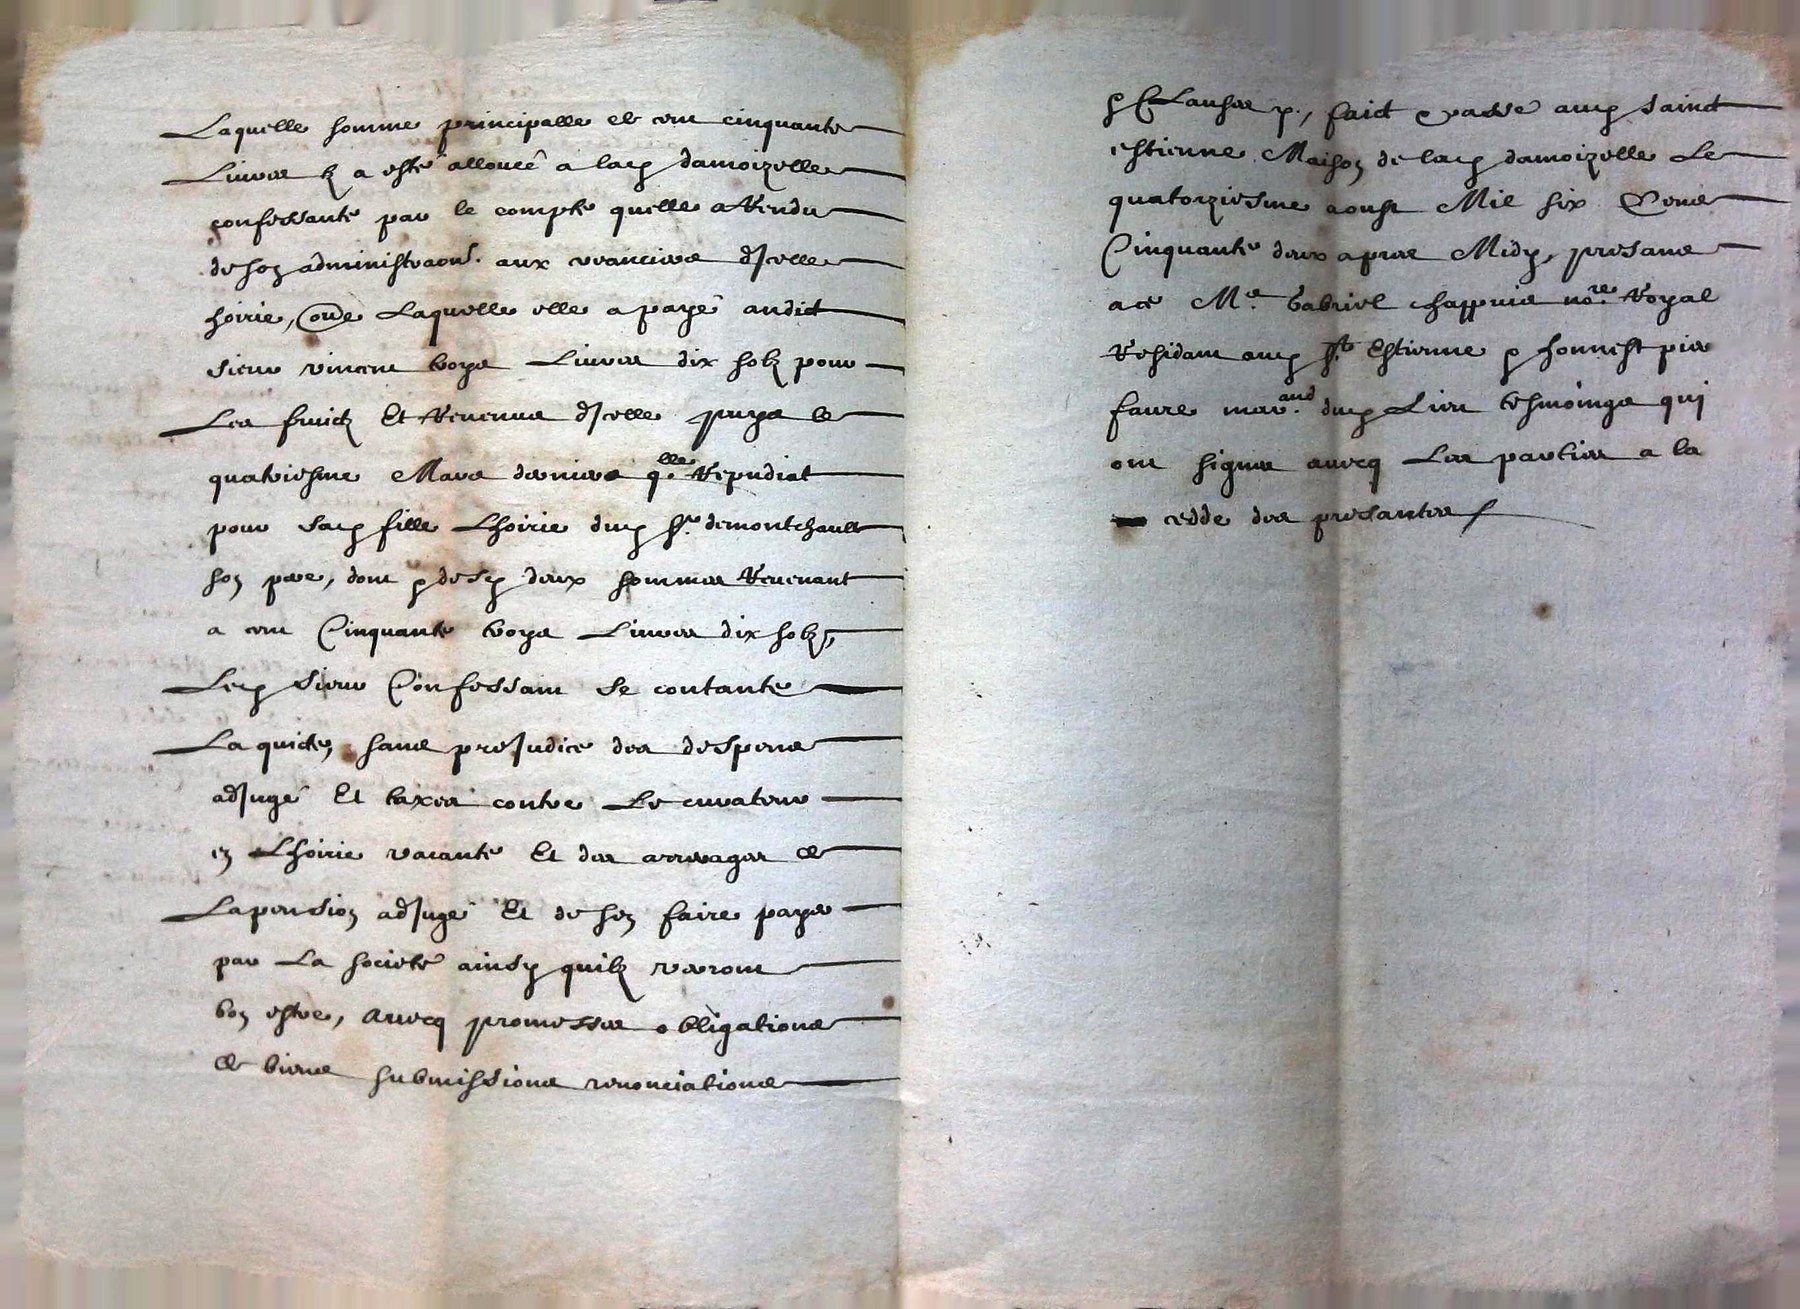 Laquelle somme principalle et cent cinquante
Livres a esté alloué a lad damoizelle
confessante par le compte quelle a Rendu
de son administraon. aux creanciers dicelle
hoirie, outre Laquelle elle a payé audict
sieur vincent troys Livres dix solz pour
Les fruictz Et Revenus dicelle puys le
quatriesme Mars derniers qelle Repudiat
pour sad fille Lhoirie dud sr. demontchault
son pere, dont et desd deux sommes Revenant
a cent Cinquante troys Livres dix solz,
Led sieur Confessant se contante
La quicte, sans preJudice des despens
adJugé Et taxes contre Le curateur
en Lhoirie vacante Et des arrerages de
La pension adJugé Et de sen faire payer
par La societé ainsy quilz verront
bon estre, avecq promesses obligations
de biens submissions renonciations
et Clauses p., faict et passé aud sainct
estienne Maison de lad damoizelle Le
quatorziesme aoust Mil six Cens
Cinquante deux apres Midy, presans
a ce Me. Gabriel chappuis nore. Royal
Residant aud St Estienne et honnest pier
faure marand. dud Lieu tesmoings qui
ont signer avecq Les parties a la
cedde des presantes